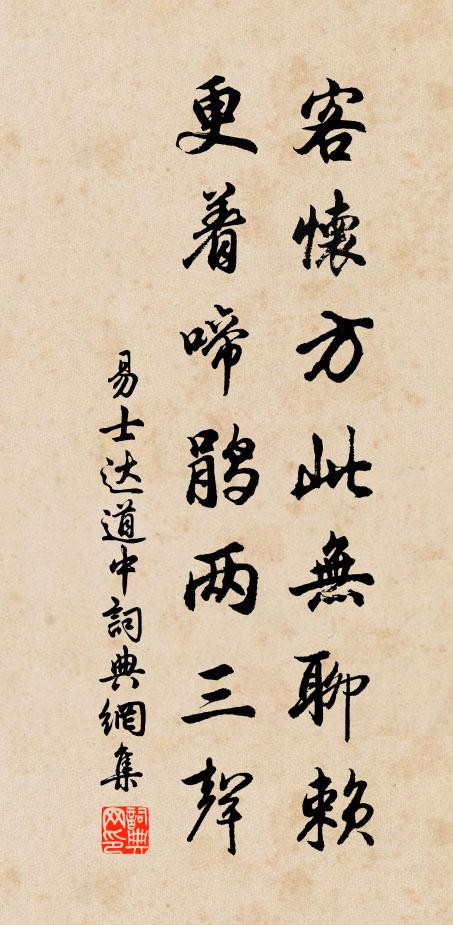 客懷方此無聊賴
更着啼鹃两三聲
易士达道中詞典網集
詞典网印